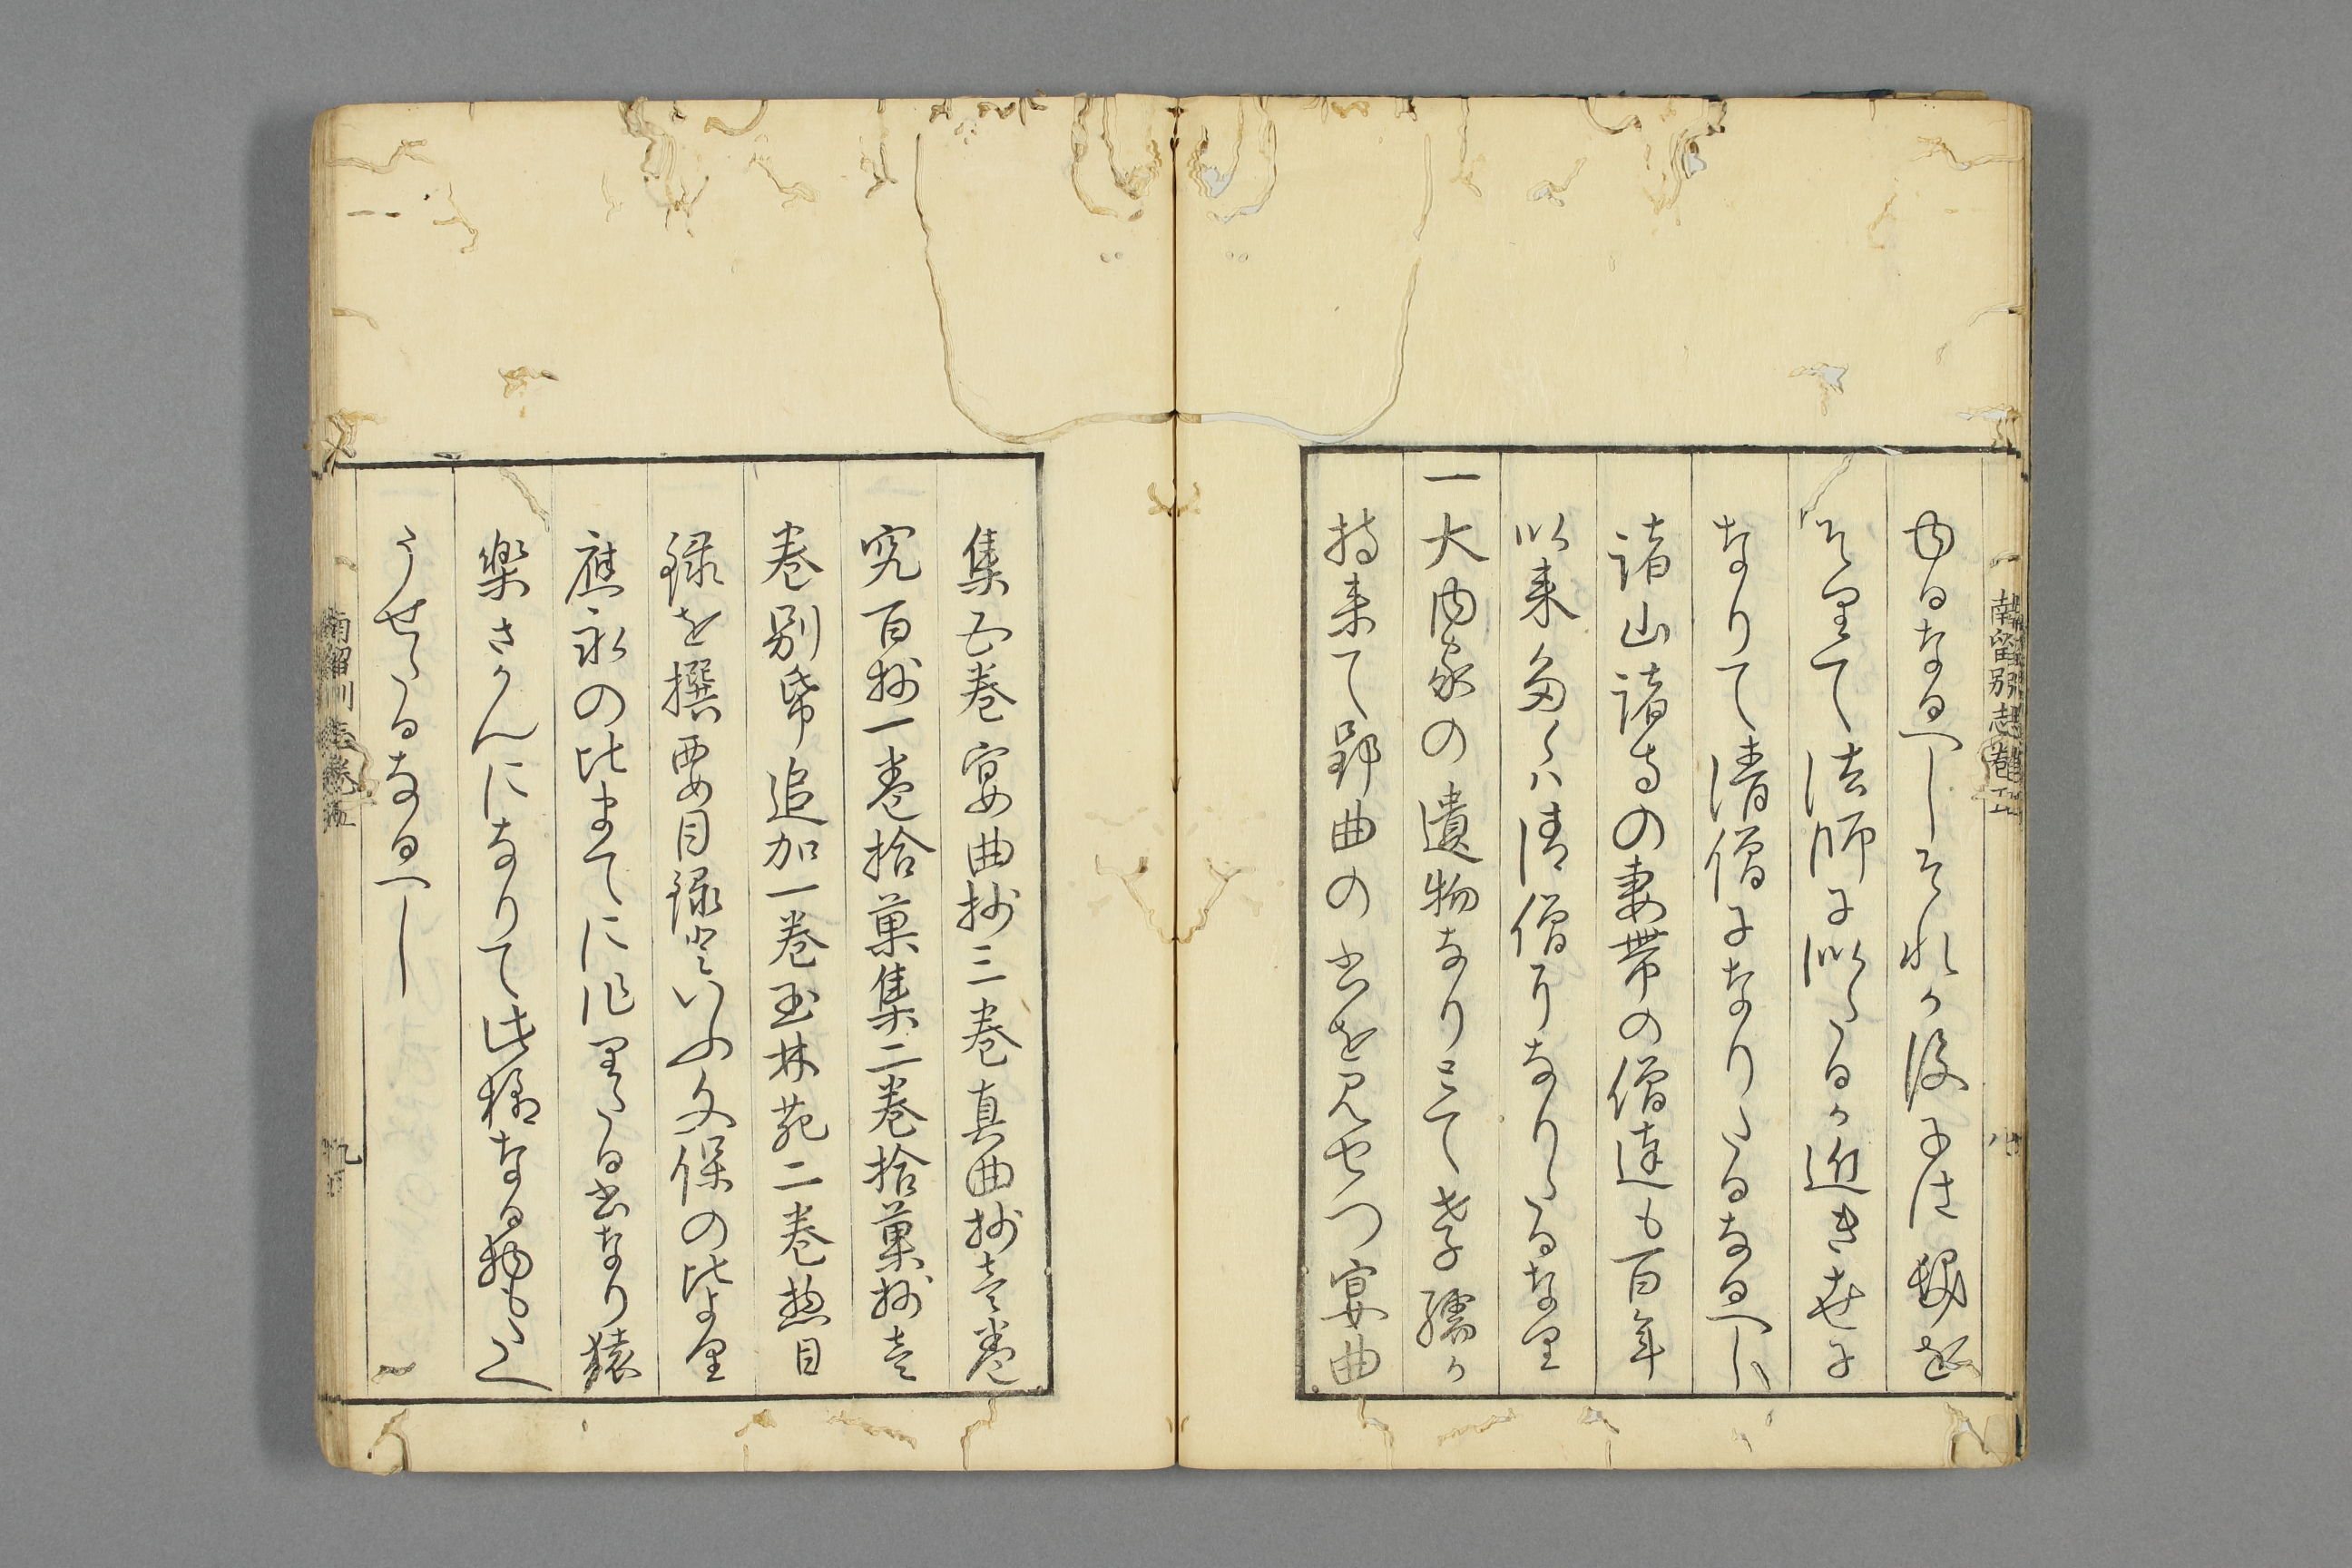 ゆるなるへしそれか後には髪を
そりて法師に似たるか近き世に
なりて清僧になりたるなるへし
諸山諸寺の妻帯の僧達も百年
以来多くハ清僧になりたるなり
一大内家の遺物なりとて孝孺か
持来て郢曲の書を見せつ宴曲
南留別志巻五
八
集五巻宴曲抄三巻真曲抄壱巻
究百抄一巻拾菓集二巻拾菓抄壱
巻別紙追加一巻玉林苑二巻惣目
録を撰要目録といふ文保の比より
應永の比まてに作りたる書なり猿
楽さかんになりて此様なる物もたえ
うせたるなるへし
南留別志巻五
九